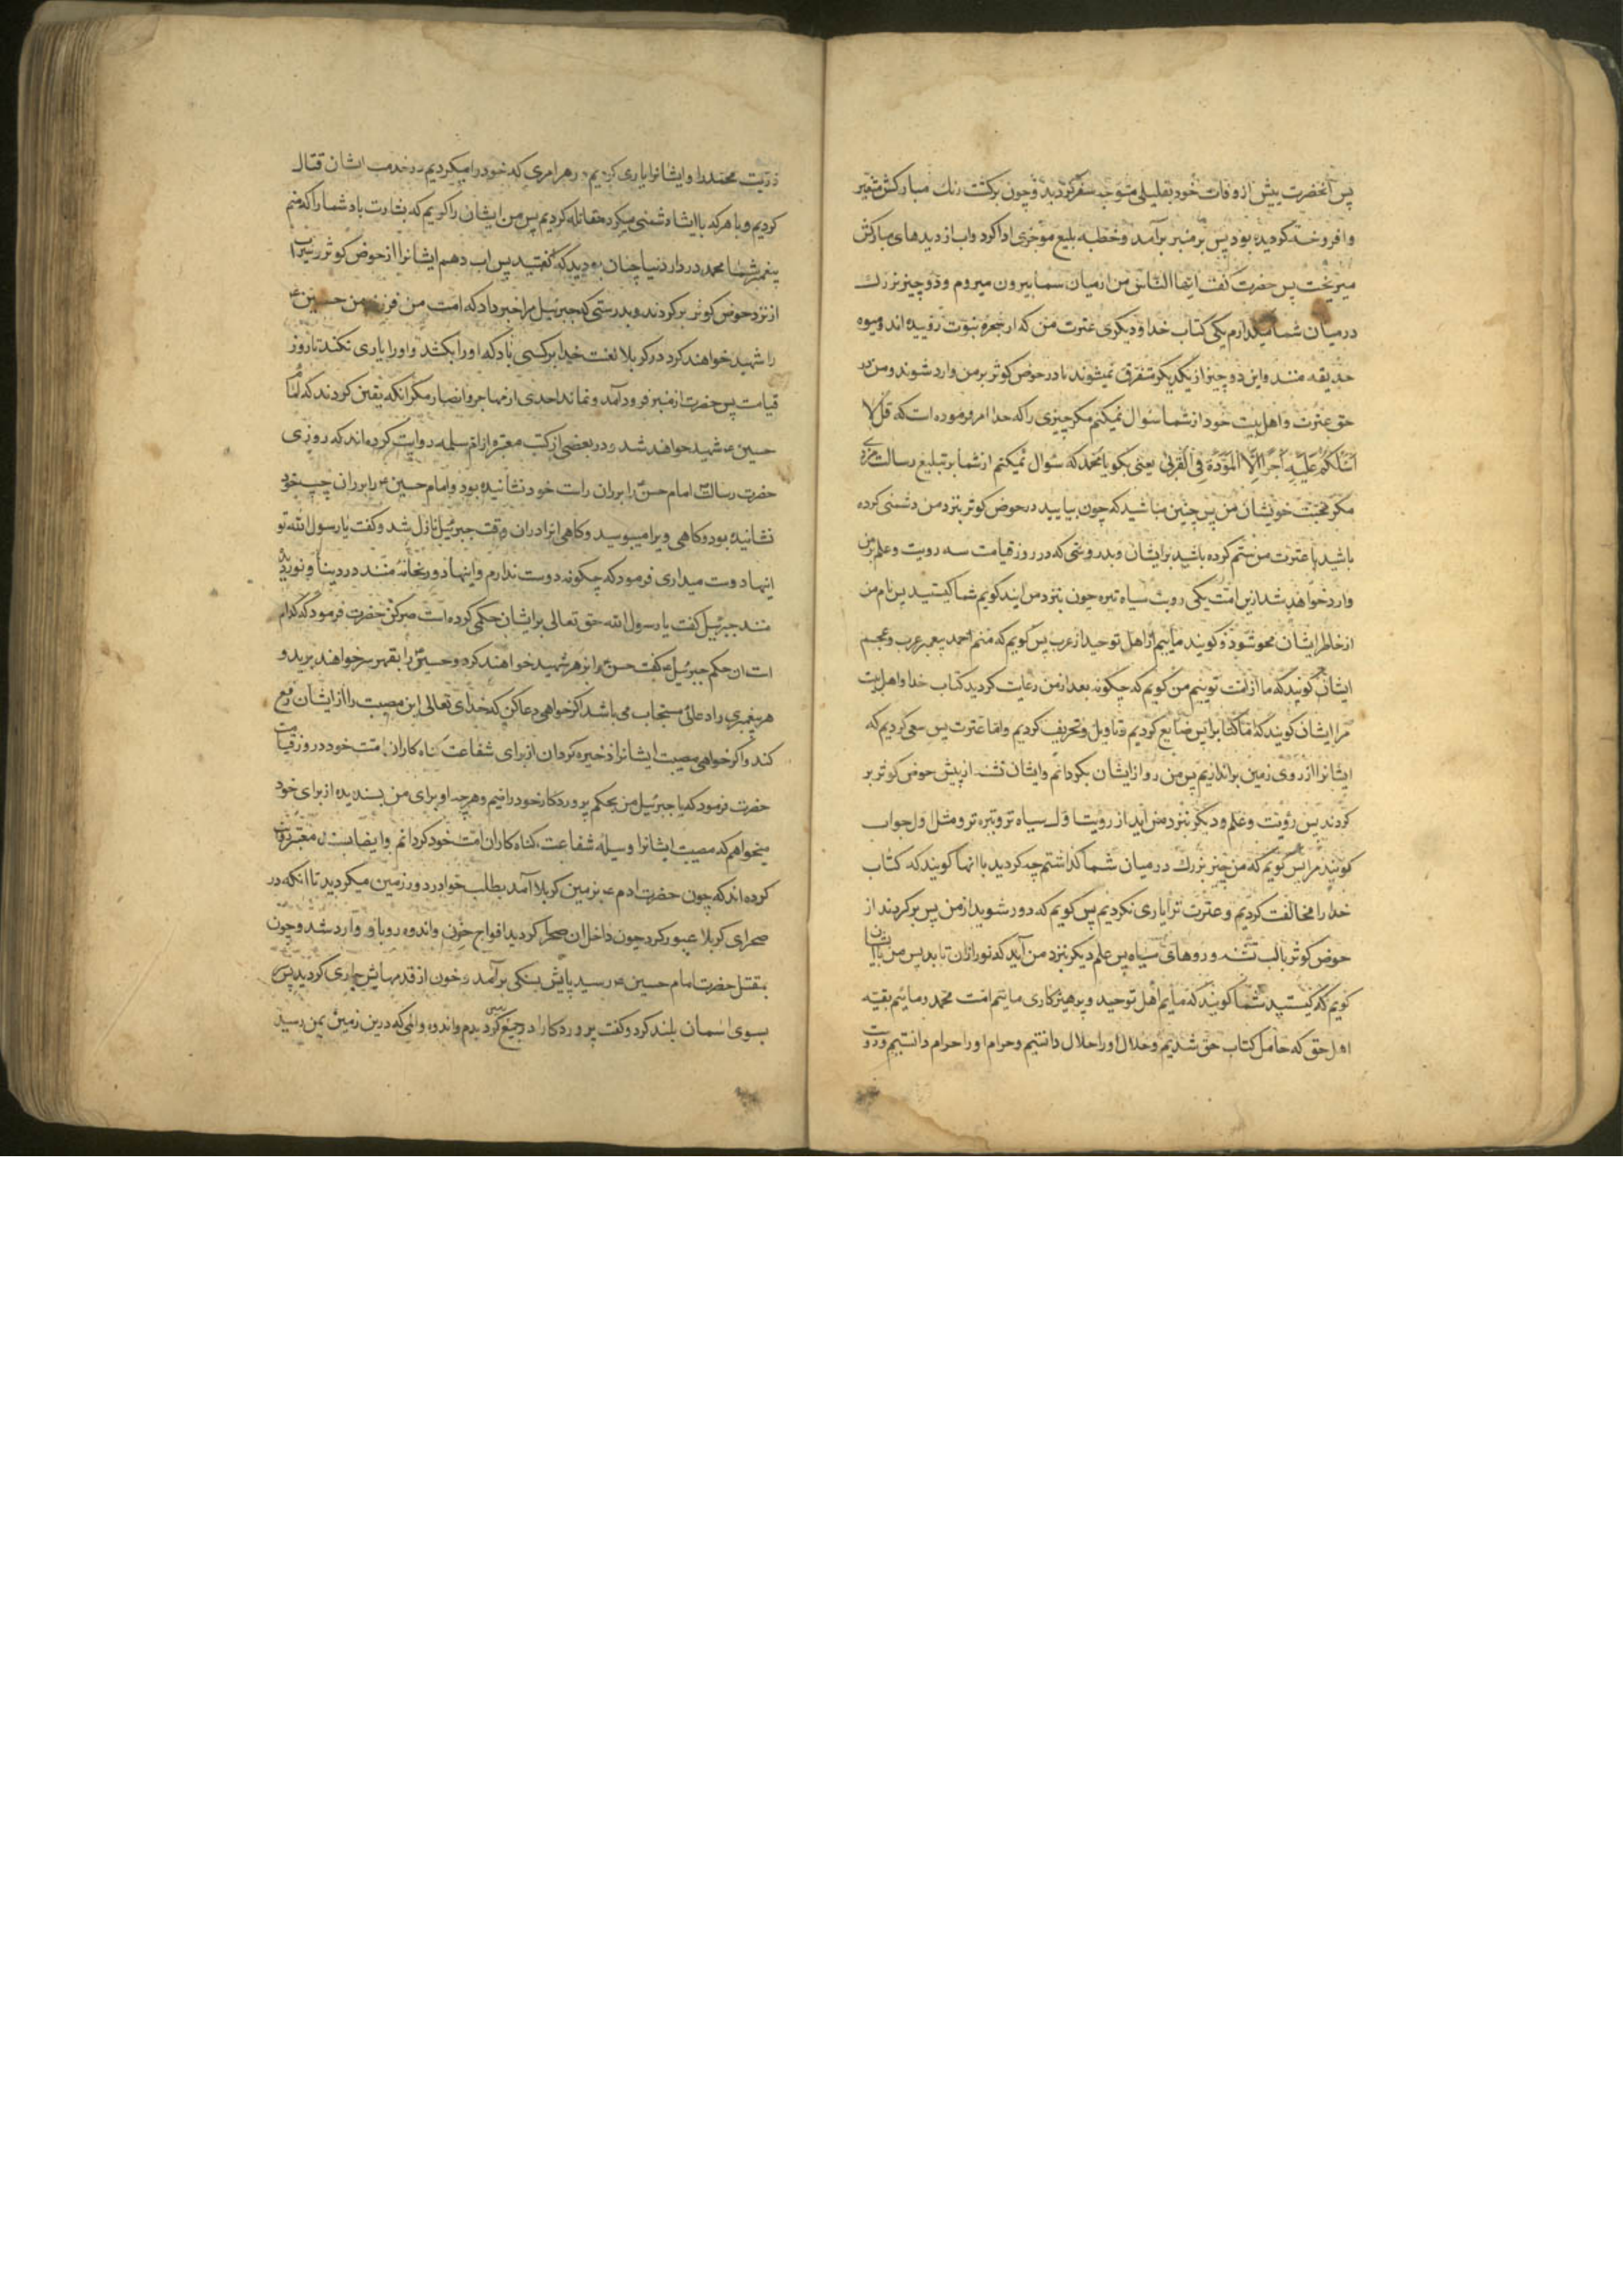 پس آنحضرت پیش از وفات خود بقلیلی متوجه سفر گردید و چون برگشت رنك مبارکش متغیر
و افروخته گردیده بود پس بر منبر برآمد و خطبه بلیغ موجزی ادا کرد و اب از دیدهای مبارکش
میریخت پس حضرت گفت ایها الناس من از میان شما بیرون میروم و دو چیز بزرك
در میان شما میگذارم یکی کتاب خدا و دیگری عترت من که از شجره نبوت روییده اند و میوه
حدیقه منند و این دو چیز از یکدیگر متفرق نمیشوند تا در حوض کوثر بر من وارد شوند و من در
حق عترت و اهل بیت خود از شما سؤال نمیکنم مگر چیزی را که خدا امر فرموده است که قل لا
اسئلکم علیه اجرا الا المودة فی القربی یعنی بگو یا محمد که سؤال نمیکنم از شما بر تبلیغ رسالت مزدی
مگر محبت خویشان من پس چنین مباشید که چون بیایید در حوض کوثر بنزد من دشمنی کرده
باشید با عترت من ستم کرده باشید برایشان و بدرستی که در روز قیامت سه رویت و علم بر من
وارد خواهد شد ازین امت یکی رویت سیاه تیره چون بنزد من ایند گویم شما کیستید پس نام من
از خاطر ایشان محو شود و گویند ماییم از اهل توحید از عرب پس گویم که منم احمد پیغمبر عرب و عجم
ایشان گویند که ما از امت توییم من گویم که چگونه بعد از من رعایت کردید کتاب خدا و اهل بیت
مرا ایشان گویند که اما کتابرا پس ضایع کردیم و تاویل و تحریف کردیم و اما عترت پس سعی کردیم که
ایشانرا از روی زمین براندازیم پس من رو از ایشان بگردانم و ایشان تشنه از پیش حوض کوثر بر
گردند پس رؤیت و علم دیگر بنزد من آید از رؤیت اول سیاه تر و تیره تر و مثل اول جواب
گویند مرا پس گویم که من چیز بزرك در میان شما گذاشتم چه کردید با انها گویند که کتاب
خدا را مخالفت کردیم و عترت ترا یاری نکردیم پس گویم که دور شوید از من پس برگردند از
حوض کوثر با لب تشنه و روهای سیاه پس علم دیگر بنزد من آید که نور ازان تابد پس من با ایشان
گویم که کیستید شما گویند که مایم اهل توحید و پرهیزکاری ماییم امت محمد و مائیم بقیه
اهل حق که حامل کتاب حق شدیم و حلال اورا حلال دانستیم و حرام اورا حرام دانستیم و دوست
ذریت محمد را و ایشانرا یاری کردیم در هر امری که خود را میکردیم در خدمت ایشان قتال
کردیم و با هر که با ایشان دشمنی میکرد مقاتله کردیم پس من ایشان را گویم که بشارت باد شما را که منم
پیغمبر شما محمد در دار دنیا چنان بودید که گفتید پس اب دهم ایشانرا از حوض کوثر
از نزد حوض کوثر برگردند و بدرستی که جبرئیل مرا خبر داد که امت من فرزند من حسین
را شهید خواهند کرد در کربلا لعنت خدا بر کسی باد که اورا بکشد و اورا یاری نکند تا روز
قیامت پس حضرت از منبر فرود آمد و نماند احدی از مهاجر و انصار مگر انکه یقین کردند که امام
حسین شهید خواهد شد و در بعضی از کتب معتبره از ام سلمه روایت کرده اند که روزی
حضرت رسالت امام حسن را بر ران راست خود نشانیده بود و امام حسین را بر ران چپ خود
نشانیده بود و کاهی ویرا میبوسید و کاهی انرا دران وقت جبرئیل نازل شد و گفت یا رسول الله تو
انها دوست میداری فرمود که چگونه دوست ندارم و اینها دو ریحانه منند در دنیا و نور دیده
منند جبرئیل گفت یا رسول الله حق تعالی بر ایشان حکمی کرده است صبر کن حضرت فرمود که کدام
است ان حکم جبرئیل گفت حسن را بزهر شهید خواهند کرد و حسین را بقهر سر خواهند برید و
هر پیغمبری را دعائی مستجاب می باشد اگر خواهی دعا کن که خدای تعالی این مصیبت را از ایشان رفع
کند و اگر خواهی مصیبت ایشانرا ذخیره گردان از برای شفاعت گناه کاران امت خود در روز قیامت
حضرت فرمود که یا جبرئیل من بحکم پروردکار خود راضیم و هرچه او برای من پسندیده از برای خود
میخواهم که مصیبت ایشانرا وسیله شفاعت گناه کاران امت خود گردانم و ایضا بسند معتبر روایت
کرده اند که چون حضرت ادم بزمین کربلا آمد بطلب حوا در دور زمین میگردید تا انکه در
صحرای کربلا عبور کرد چون داخل ان صحرا گردید افواج حزن و اندوه رو باو وارد شد و چون
بمقتل حضرت امام حسین رسید پایش بسنگی برآمد و خون از قدمهایش جاری گردید پس
بسوی اسمان بلند کرد و گفت پروردکارا در جمیع زمین گردیدم و اندوه و المی که درین زمین بمن رسید